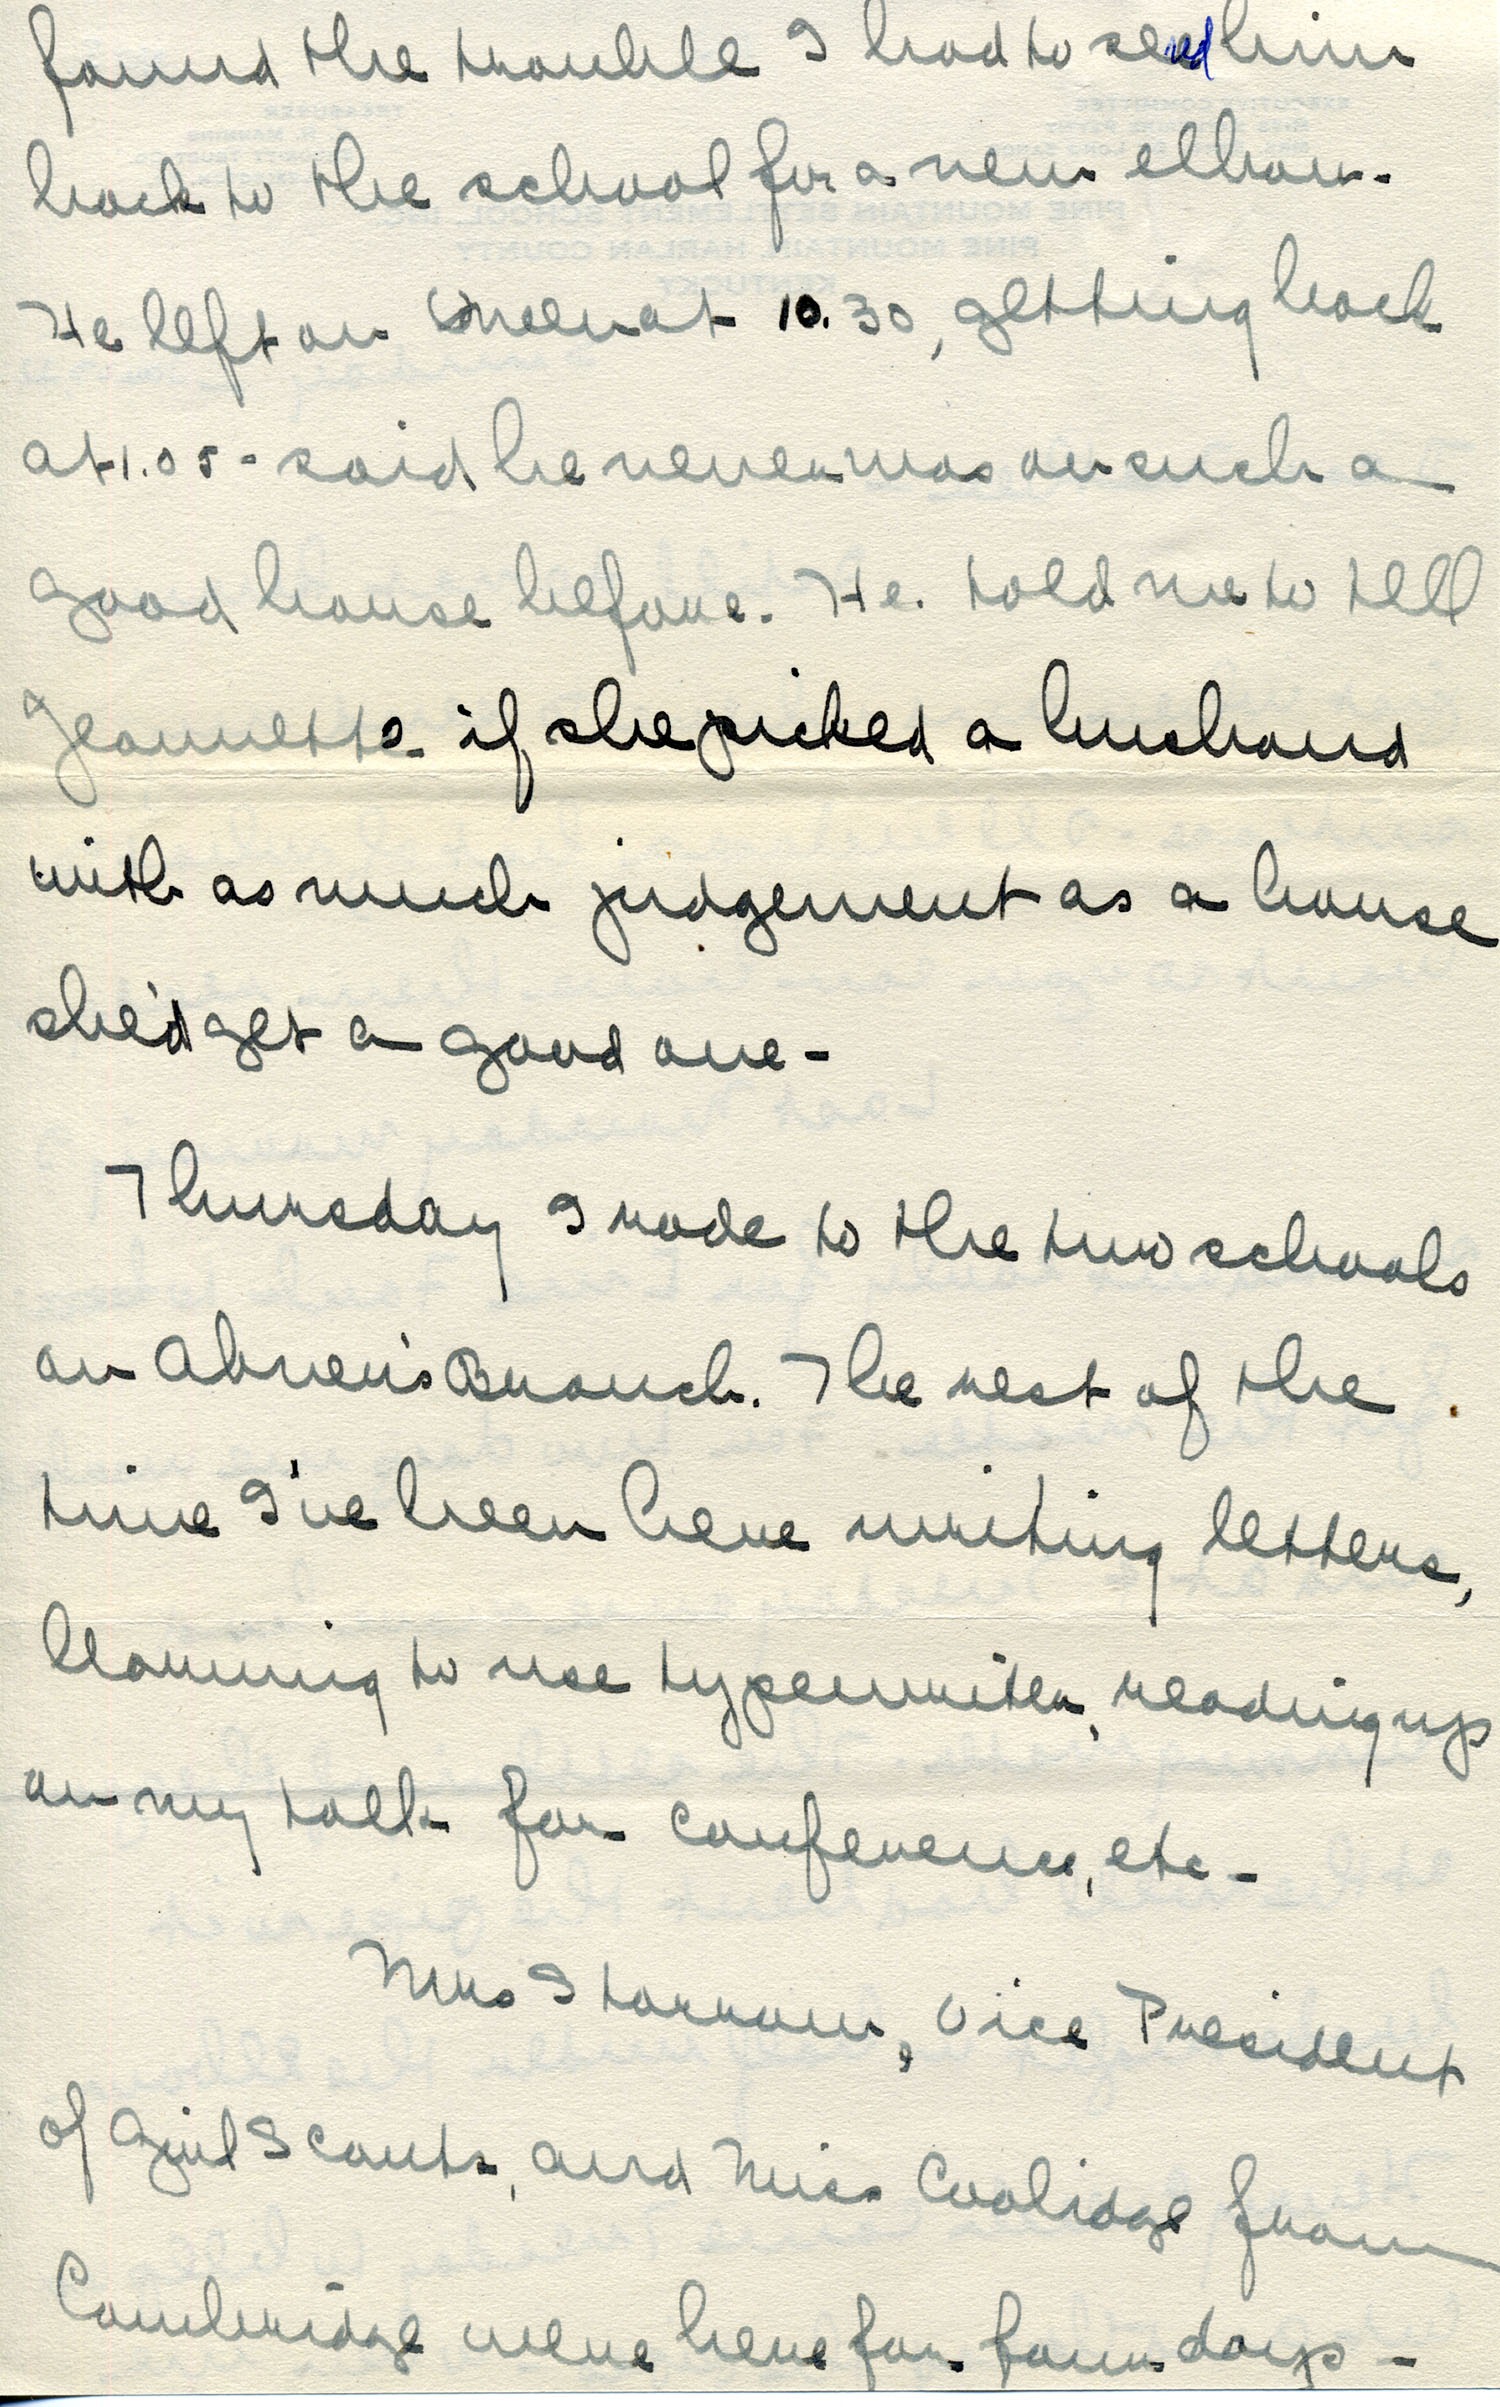 found the trouble I had to send him
back to the school for a new elbow -
He left on Queen at 10.30, getting back
at 1.05 - said he never was on such a
good horse before. He. told me to tell
Jeannette if she picked a husband
with as much judgement as a horse
she'd get a good one -
Thursday I rode to the two schools
on Abner's Branch. The rest of the
time I've been here writing letters,
learning to use typewriter, reading up
on my talk for conference, etc -
Mrs Storrow, Vice President
of Girl Scouts, and Miss Coolidge from
Cambridge were here for four days -